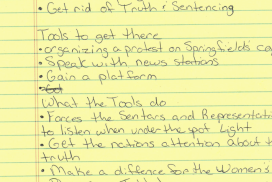 • Get rid of Truth & Sentencing
Tools to get there
• organizing a protest on Springfield's
• Speak with news stations
• Gain a platform
What the Tools do
• Forces the Sentars and
to listen when under the spot light
• Get the nations attention about
truth
• Make a diffence for the Women's